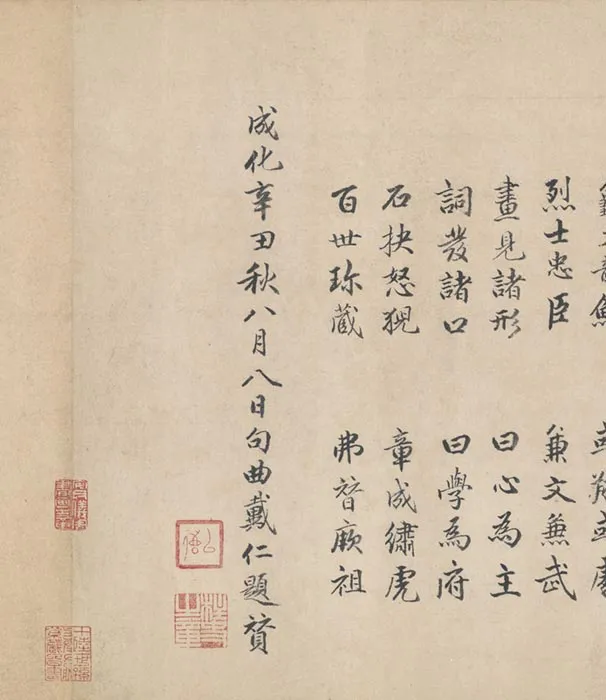 烈士忠臣　兼文兼武
畫見諸形　曰心為主
詞發諸口　曰學為府
石抉怒猊　章成繡虎
百世珍蔵　弗替厥祖
成化辛丑秋八月八日句曲戴仁題賛